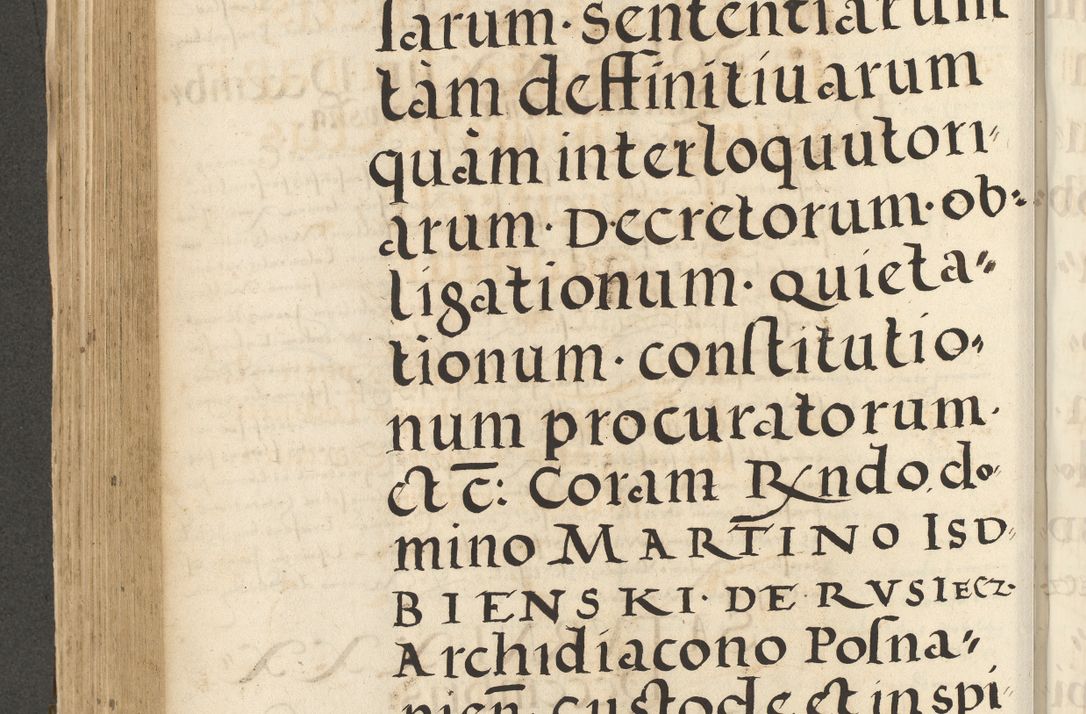 sarum· sententiarum
tàm deffinitiuarum
quàm interloquutori〃
arum· Decretorum· ob〃
ligationum· quieta〃
tionum· constitutio〃
num procuratorum·
et c̄: Coram Rndo. do〃
mino MARTINO ISD〃
BIENSKI· DE RVSIECZ·
Archidiacono Posna〃
nieñ· custode et in spi